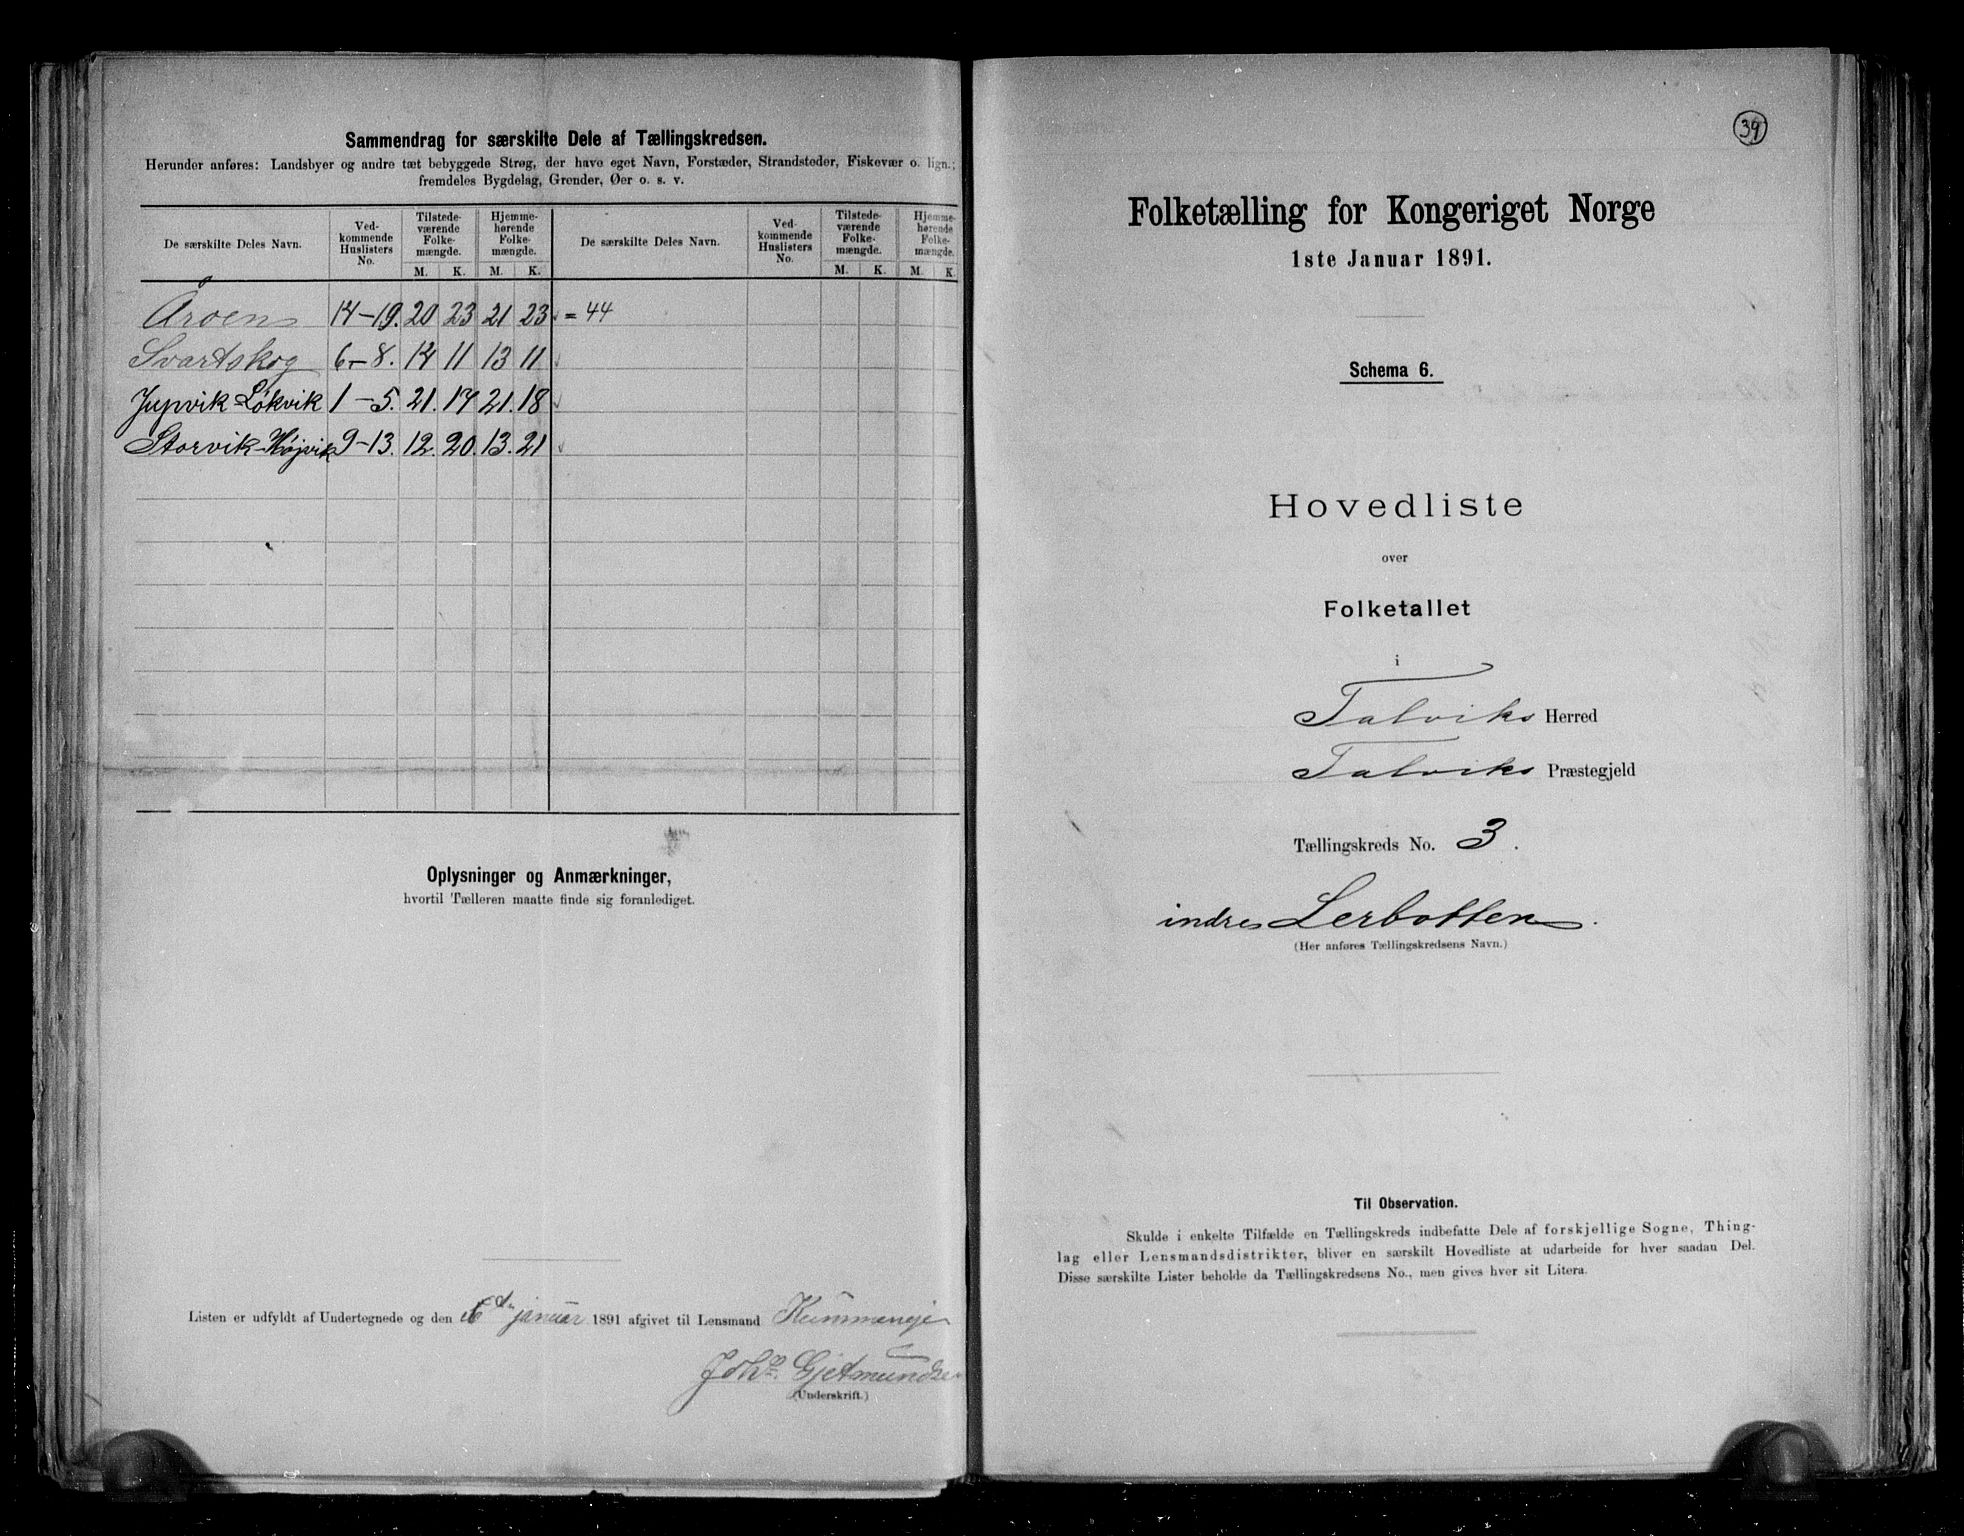 Sammendrag for særskilte Dele af Tællingskredsen.
Herunder anføres: Landsbyer og andre tæt bebyggede Strøg, der have eget Navn, Forstæder, Strandsteder, Fiskevær o. lign.;
fremdeles Bygdelag, Grender, Øer o. s. v.
De særskilte Deles Navn. Ved-kommende Huslisters No. Tilstede-værende Folke-mængde. Hjemme-hørende Folke-mængde. De særskilte Deles Navn. Ved-kommende Huslisters No. Tilstede-værende Folke-mængde. Hjemme-hørende Folke-mængde.
M. K. M. K. M. K. M. K.
Åroen 14-19. 20 23 21 23 = 44
Svartskog 6-8. 14 11 13 11
Jupvik-Løkvik 1-5. 21. 17 21. 18
Storvik-Højvik 9-13. 12. 20. 13. 21
Oplysninger og Anmærkninger,
hvortil Tælleren maatte finde sig foranlediget.
Listen er udfyldt af Undertegnede og den januar 1891 afgivet til Lensmand Kummeneje
Johs. Gjetmundsen
(Underskrift.)
39
Folketælling for Kongeriget Norge
1ste Januar 1891.
Schema 6.
Hovedliste
over
Folketallet
i
Talviks Herred
Talviks Præstegjeld
Tællingskreds No. 3.
indre Lerbotten.
(Her anføres Tællingskredsens Navn.)
Til Observation.
Skulde i enkelte Tilfælde en Tællingskreds indbefatte Dele af forskjellige Sogne, Thing-
lag eller Lensmandsdistrikter, bliver en særskilt Hovedliste at udarbeide for hver saadan Del.
Disse særskilte Lister beholde da Tællingskredsens No., men gives hver sit Litera.